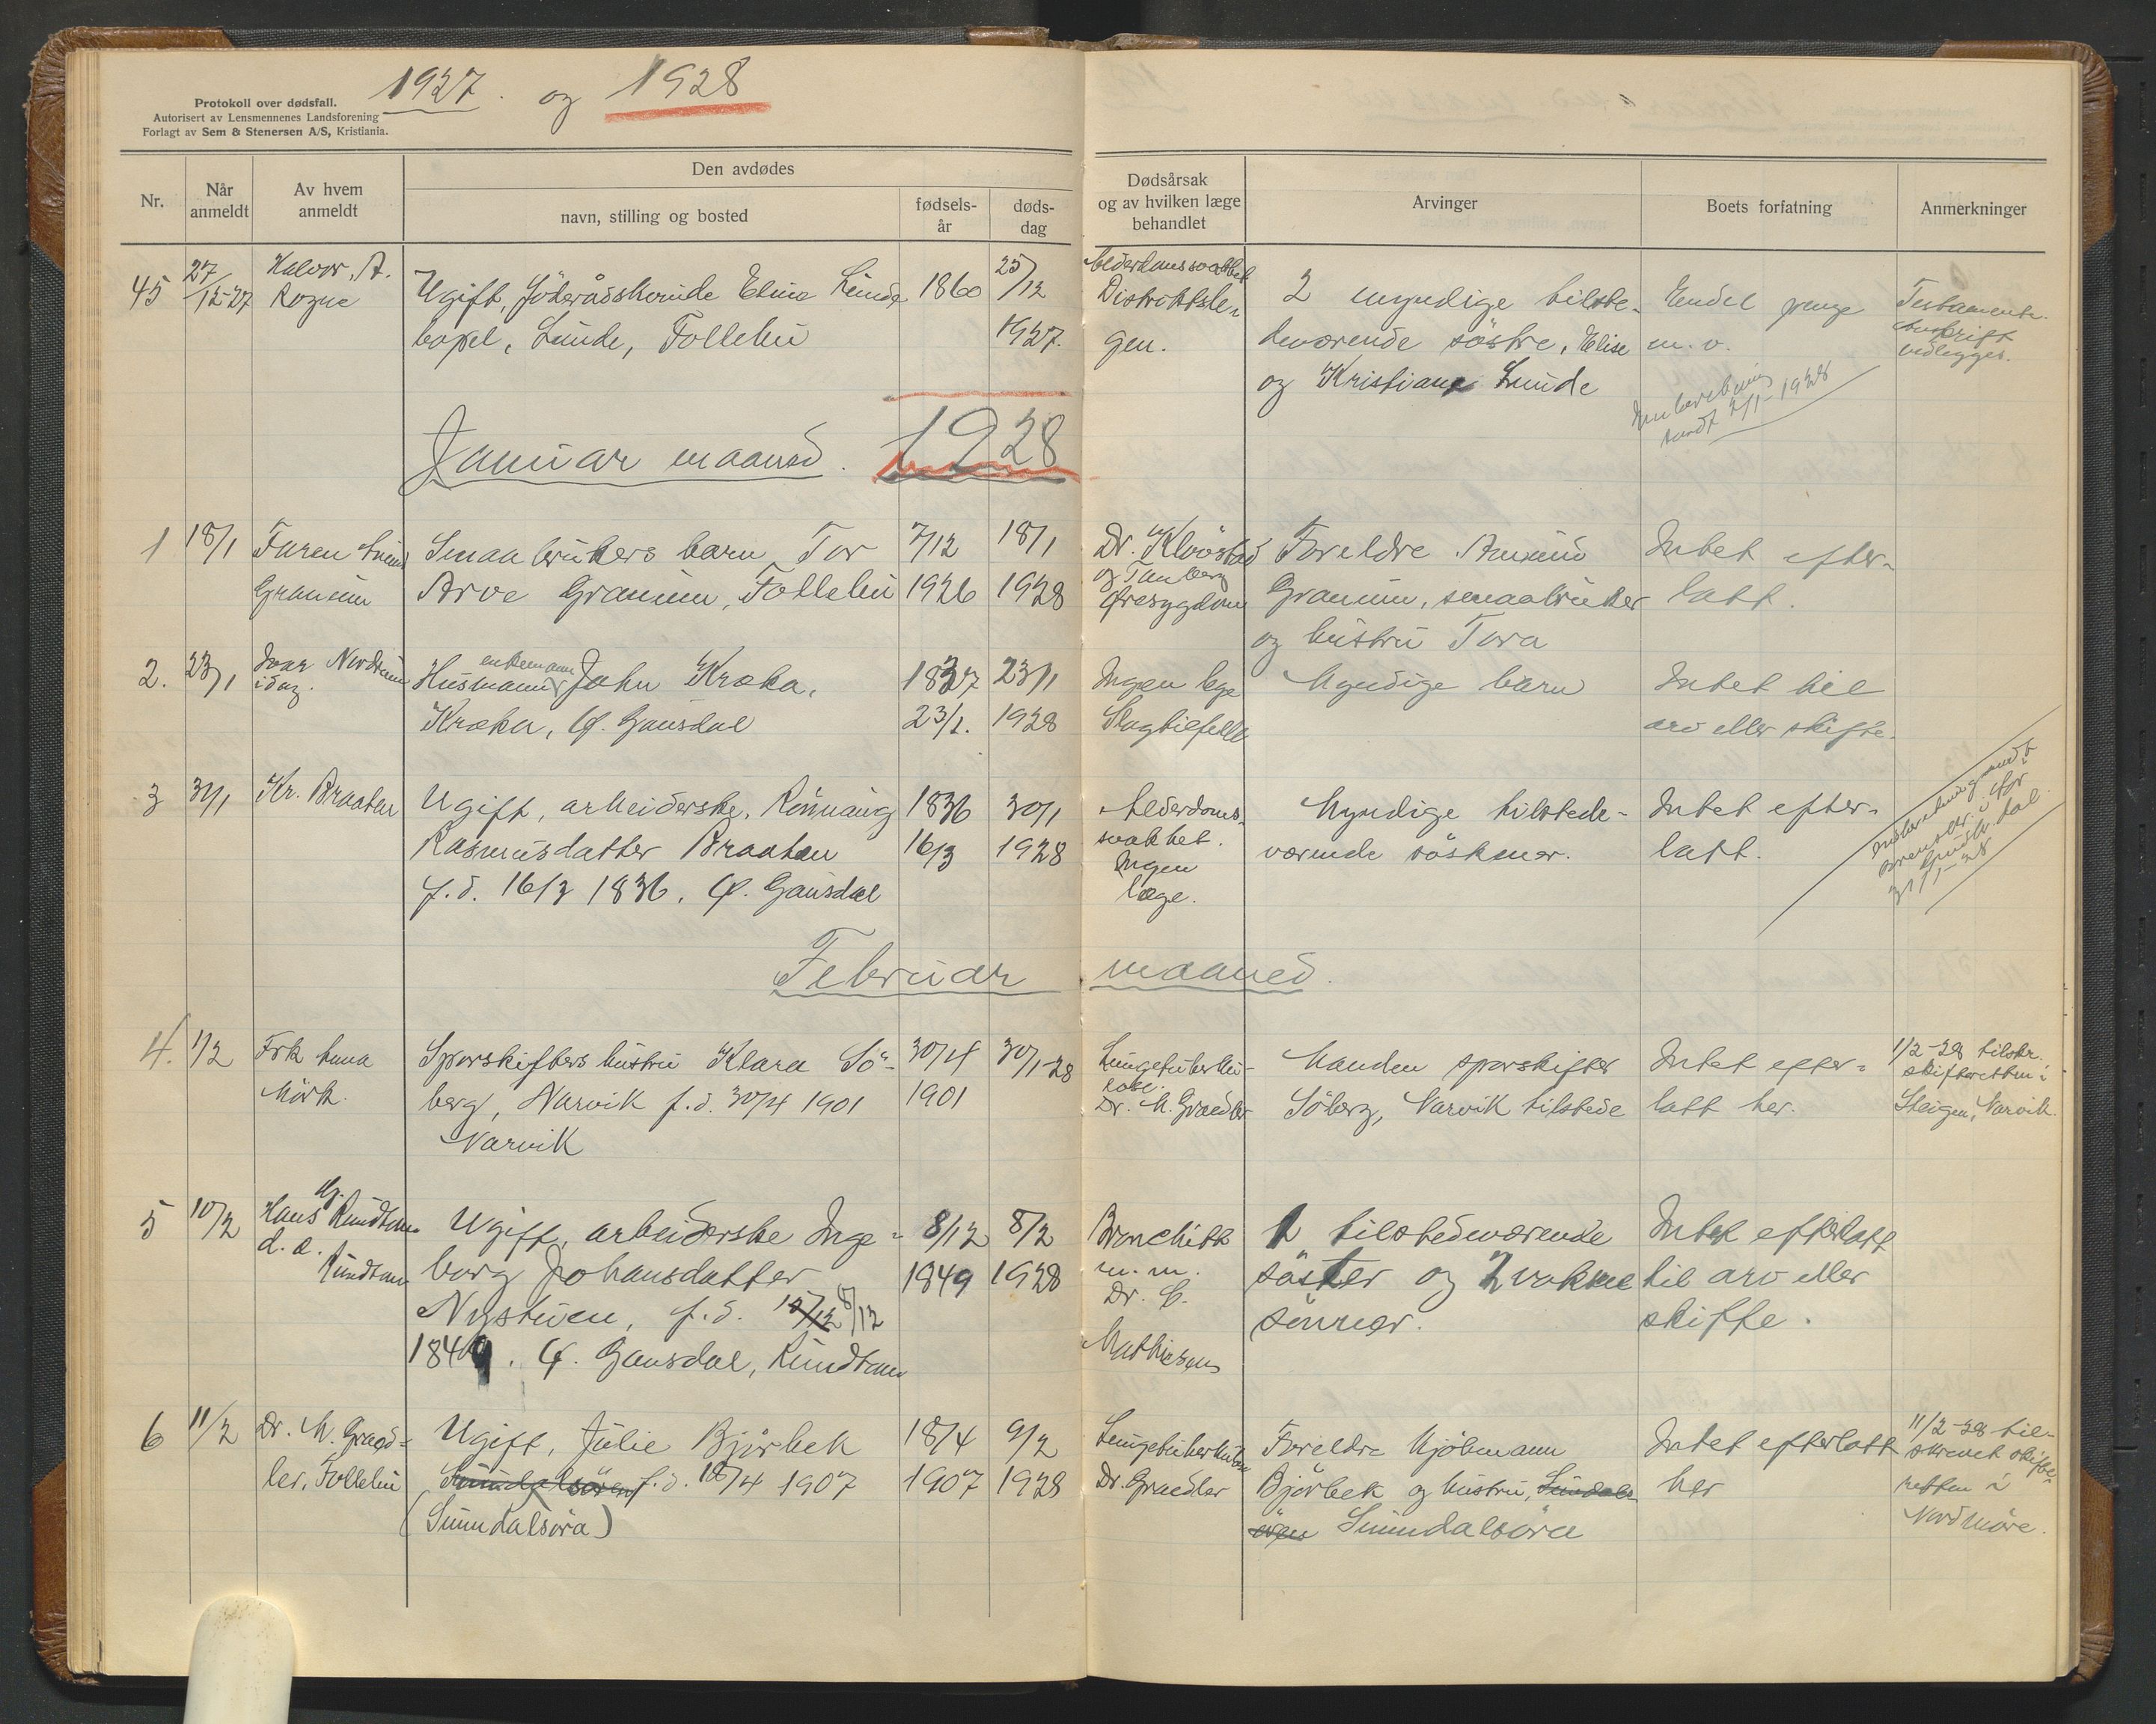 1927 og 1928
Protokoll over dødsfall.
Autorisert av Lensmennenes Landsforening
Forlagt av Sem & Stenersen A/S, Kristiania.
Nr.
Når
anmeldt
Av hvem
anmeldt
Den avdødes
navn, stilling og bosted
fødsels-
år
døds-
dag
Dødsårsak
og av hvilken læge
behandlet
Arvinger
Boets forfatning
Anmerkninger
45
27/12-27
Halvor. A.
Rogne
Ugift, Föderådskvinde Eline Lunde
Lunde, Follebu
1860
25/12
1927.
Alderdomssvakhet
Distriktslæ-
gen.
2 myndige tilste-
deværende söstre, Elise
og Kristiane Lunde
Endel penge
m. v.
Innberetning
sendt 2/1-1928
Testamente
avskrift
vedlegges.
Januar maaned. 1928
1
18/1
Faren
Granum
Smaabrukers barn Tor
Arve Granum, Follebu
7/12
1926
18/1
1928
Dr. Klövstad
og Tanberg
Øresygdom
Foreldre Amund
Granum, smaabruker
og hustru Tora
Intet efter-
latt.
2.
23/1
Ivar Nordrum
idag.
enkemann
Husmann John Kræka,
Kræka, Ø. Gausdal
1837
23/1.
23/1
1928
Ingen lege
Slagtilfelle
Myndige barn
Intet til
arv eller skifte.
3
31/1
Kr. Braaten
Ugift, arbeiderske, Rönnaug
Rasmusdatter Braaten
f.d. 16/3 1836. Ø. Gausdal
1836
16/3
30/1
1928
Alderdoms-
svakhet.
Ingen
læge.
Myndige tilstede-
værende söskener.
Intet efter-
latt.
31/1-28
Februar maaned.
4.
1/2
Frk Anna
Mörk.
Sporskifters hustru Klara Sö-
berg, Narvik f.d. 30/4 1901
Narvik
30/4
1901
30/1-28
Lungetuberku-
lose.
Dr. M. Grædler
Manden sporskifter
Söberg, Narvik tilstede
Intet efter-
latt her.
1/2-28 tilskr.
skifteretten i
Steigen, Narvik.
5
10/2
Hans Rundtom
d. a.
Rundtom
Ugift, arbeiderske Inge-
borg Johansdatter
Nystuen, f.d. 15/12 8/12
1849. Ø. Gausdal, Rundtom
8/12
1849
8/2
1928
Bronchitt
m. m.
Dr. C.
Mathiesen
1 tilstedeværende
söster og 2 voksne
sönner.
Intet efterlatt
til arv eller
skifte.
6
11/2
Dr. M. Græd-
ler, Follebu
Ugift, Julie Björbek
Sunndalsören f.d. 18/4 1907
(Sunndalsöra)
18/4
1907
9/2
1928
Lungetuberkulose
Dr. Grædler
Foreldre Kjöbmann
Björbek og hustru, Sundals-
ören Sunndalsöra
Intet efterlatt
her
11/2-28 til-
skrevet skifte-
retten i
Nordmöre.